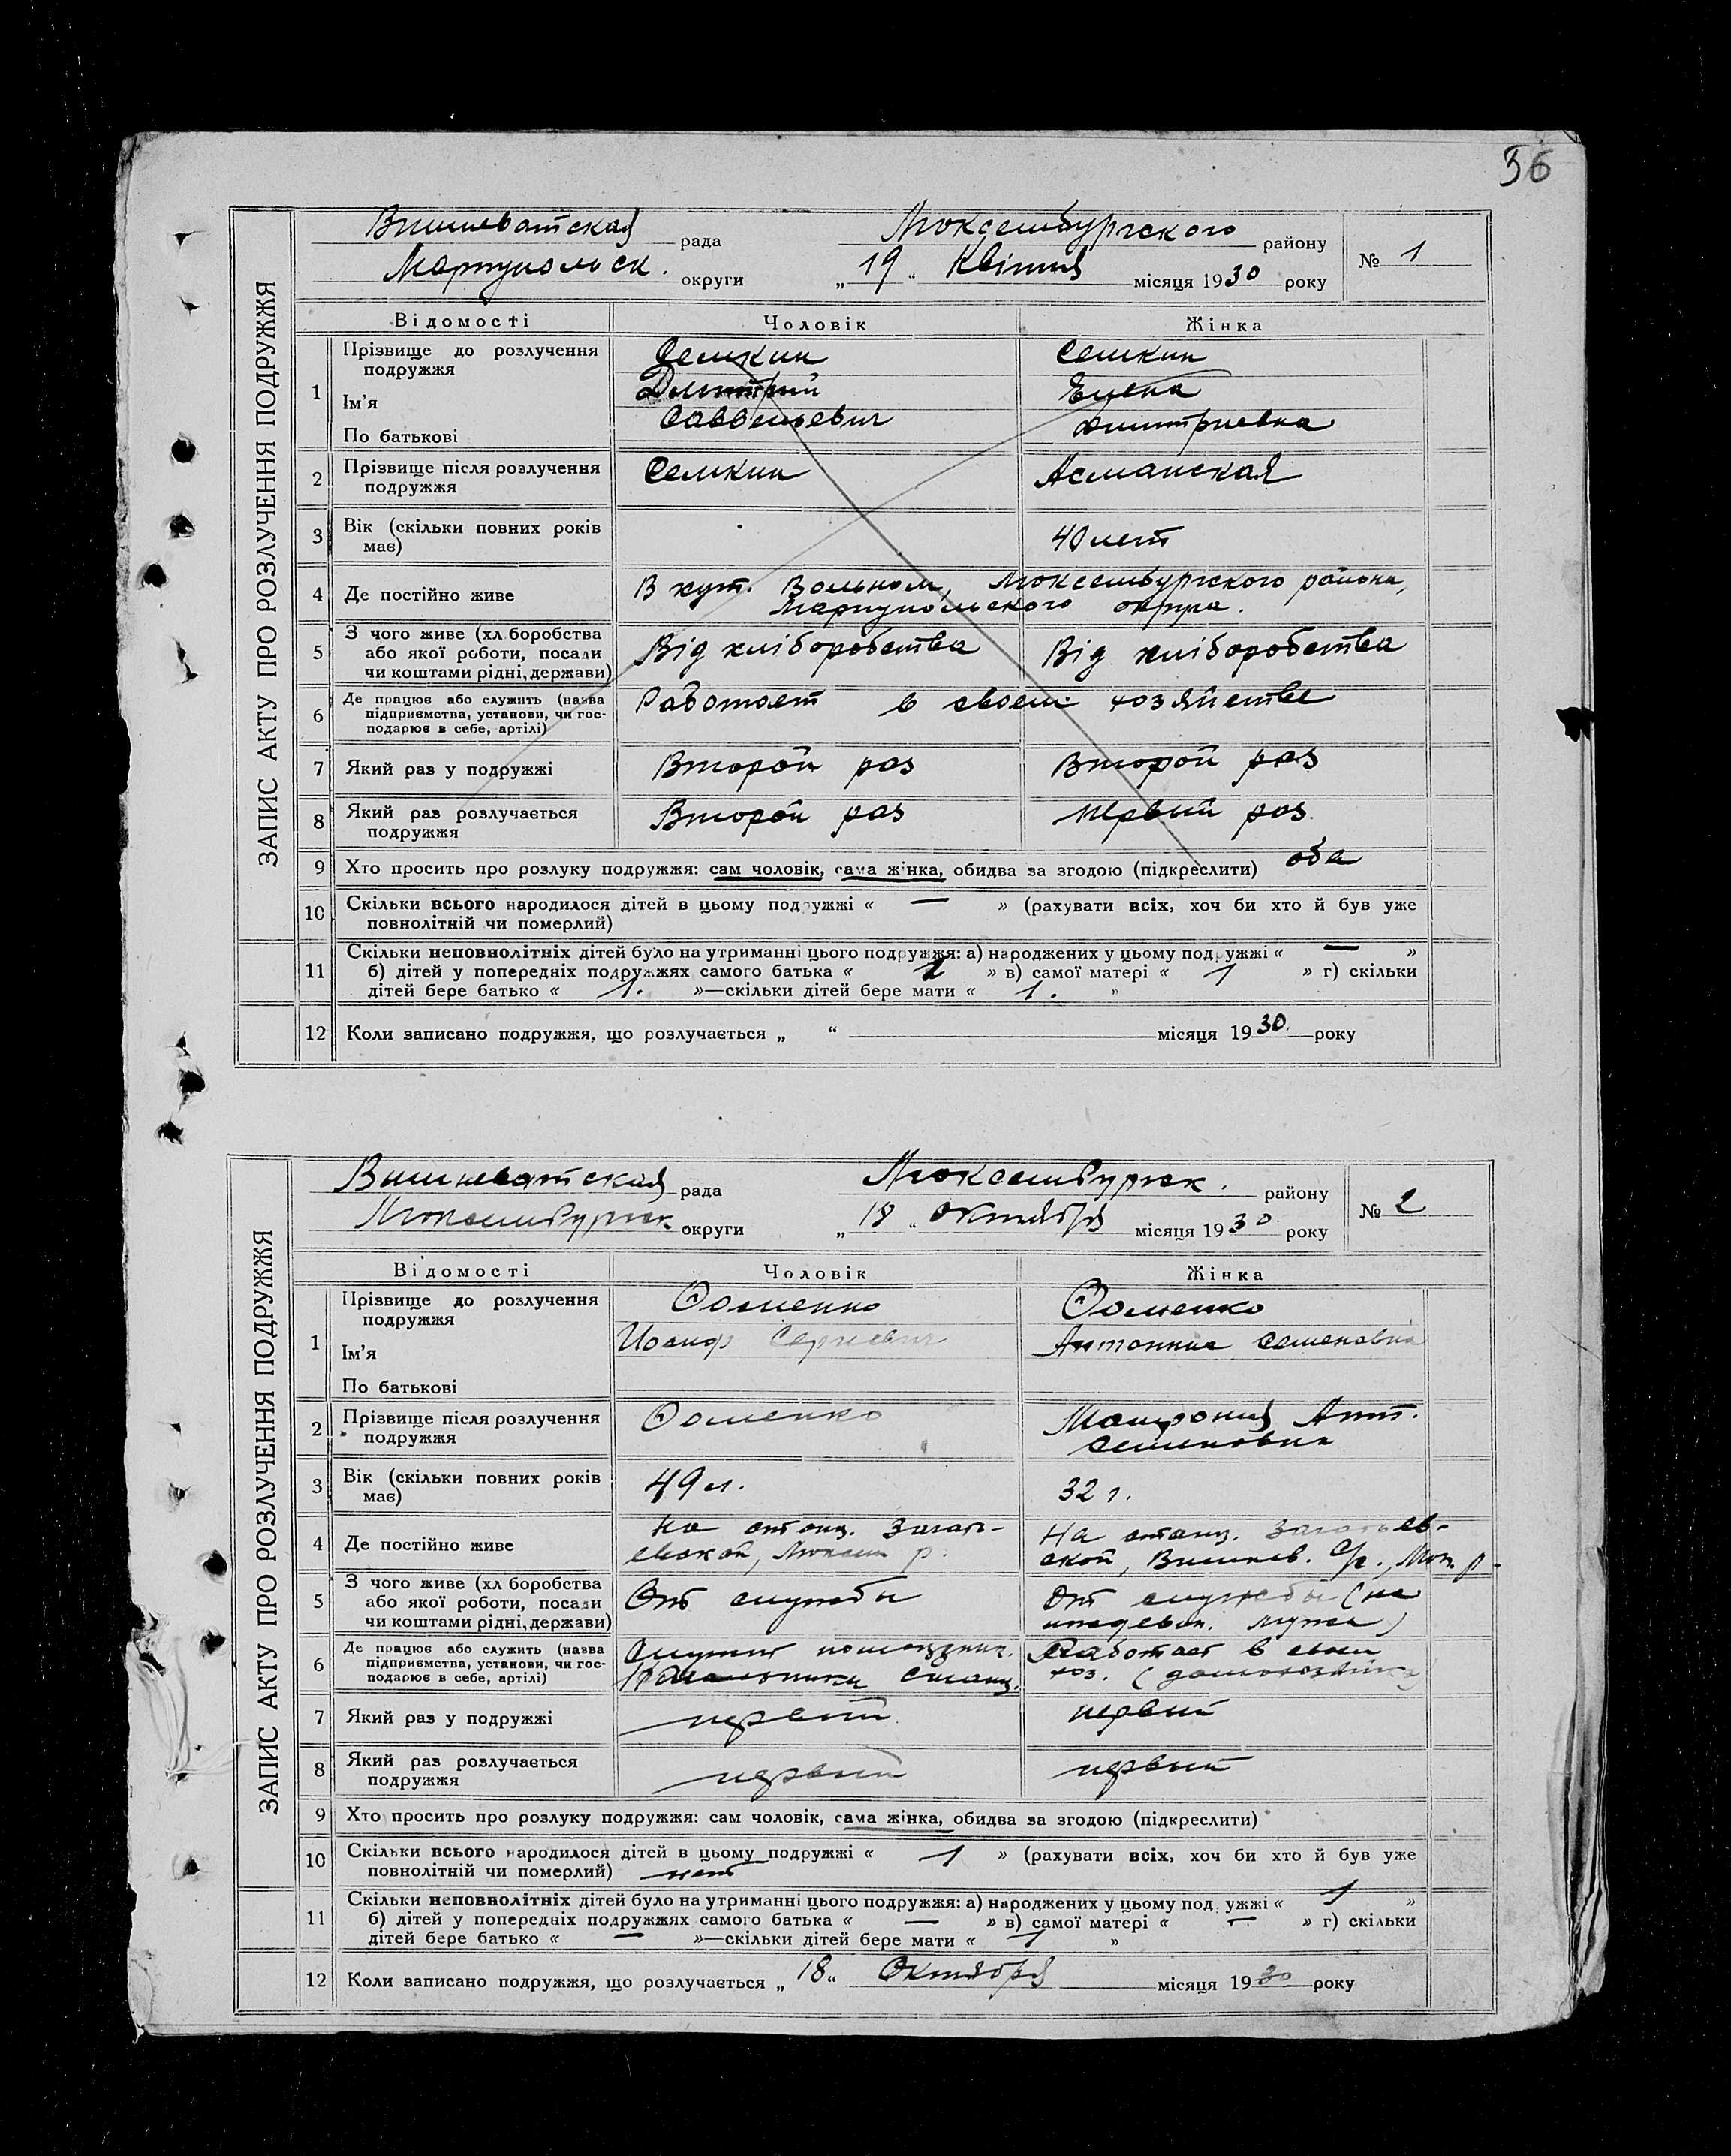 36
ЗАПИС АКТУ ПРО РОЗЛУЧЕННЯ ПОДРУЖЖЯ
Вишневатская рада Люксембургского району № 1
Мариупольск. округи „ 19 “ Квітня місяця 1930 року
Відомості Чоловік Жінка
1 Прізвище до розлучення подружжя Семкин Семкин
Ім'я Дмитрий Елена
По батькові Савельевич Дмитриевна
2 Прізвище після розлучення подружжя Семкин Асманская
3 Вік (скільки повних років має) 40 лет
4 Де постійно живе В хут. Вольном, Люксембургского района,
Мариупольского округа.
5 З чого живе (хл.боробства або якої роботи, посади чи коштами рідні, держави) Від хліборобства Від хліборобства
6 Де працює або служить (назва підприємства, установи, чи господарює в себе, артілі) Работает в своем хозяйстве
7 Який раз у подружжі Второй раз Второй раз
8 Який раз розлучається подружжя Второй раз первый раз.
9 Хто просить про розлуку подружжя: сам чоловік, сама жінка, обидва за згодою (підкреслити) оба
10 Скільки всього народилося дітей в цьому подружжі « — » (рахувати всіх, хоч би хто й був уже
повнолітній чи померлий)
11 Скільки неповнолітніх дітей було на утриманні цього подружжя: а) народжених у цьому подружжі « — »
б) дітей у попередніх подружжях самого батька « 1 » в) самої матері « 1 » г) скільки
дітей бере батько « 1. »—скільки дітей бере мати « 1. »
12 Коли записано подружжя, що розлучається „ “ місяця 1930. року
ЗАПИС АКТУ ПРО РОЗЛУЧЕННЯ ПОДРУЖЖЯ
Вишневатская рада Люксембургск. району № 2
Люксембургск. округи „ 18 “ октября місяця 1930 року
Відомості Чоловік Жінка
1 Прізвище до розлучення подружжя Фоменко Фоменко
Ім'я Иосиф Сергеевич Антонина Семеновна
По батькові
2 Прізвище після розлучення подружжя Фоменко Ант.
Семеновна
3 Вік (скільки повних років має) 49 л. 32 г.
4 Де постійно живе На станц. На станц.
5 З чого живе (хл.боробства або якої роботи, посади чи коштами рідні, держави) От службы От службы (на
иждевен. мужа)
6 Де працює або служить (назва підприємства, установи, чи господарює в себе, артілі) Служит помощник. Работает в своем
начальника станц. хоз. (домохозяйка)
7 Який раз у подружжі первый первый
8 Який раз розлучається подружжя первый первый
9 Хто просить про розлуку подружжя: сам чоловік, сама жінка, обидва за згодою (підкреслити)
10 Скільки всього народилося дітей в цьому подружжі « 1 » (рахувати всіх, хоч би хто й був уже
повнолітній чи померлий) нет
11 Скільки неповнолітніх дітей було на утриманні цього подружжя: а) народжених у цьому подружжі « 1 »
б) дітей у попередніх подружжях самого батька « — » в) самої матері « — » г) скільки
дітей бере батько « — »—скільки дітей бере мати « 1 »
12 Коли записано подружжя, що розлучається „ 18 “ Октября місяця 1930 року